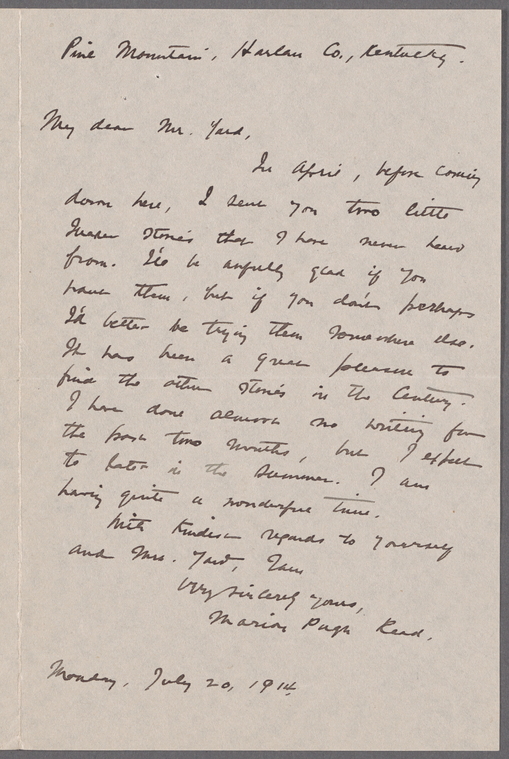 Pine Mountain, Harlan Co., Kentucky.
My dear Mr. Yard,
In April, before coming
down here, I sent you two little
Indian stories that I have never heard
from. I'd be awfully glad if you
want them, but if you don't perhaps
I'd better be trying them somewhere else.
It has been a great pleasure to
find the other stories in the Century.
I have done almost no writing for
the past two months, but I expect
to later in the summer. I am
having quite a wonderful time.
With kindest regards to yourself
and Mrs. Yard, I am
Very sincerely yours,
Marion Pugh Read.
Monday, July 20, 1914.